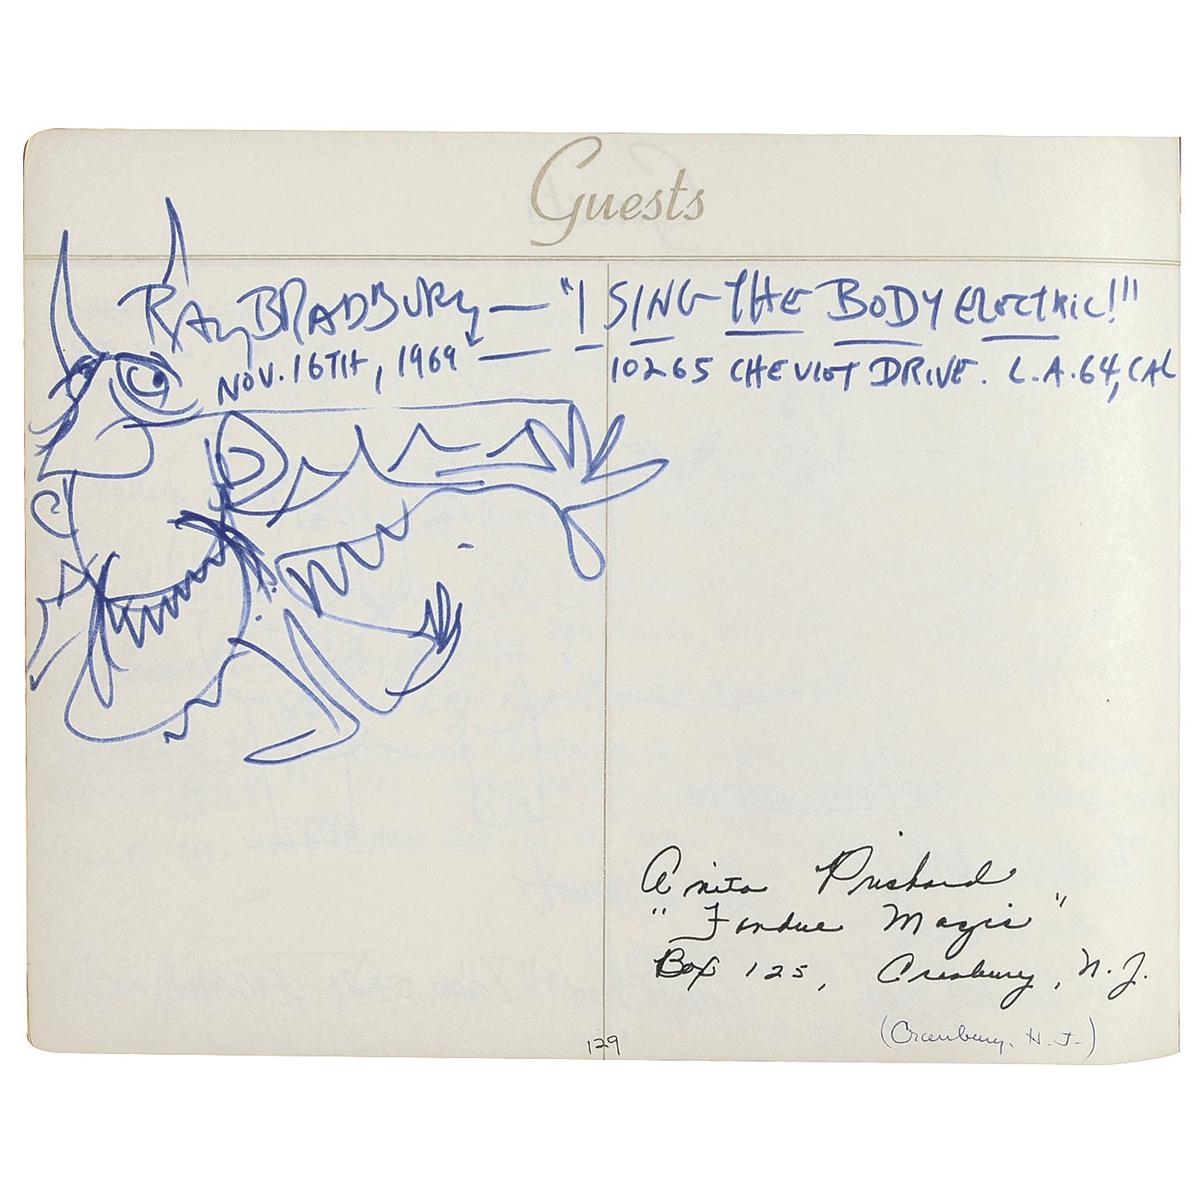 Guests
RAY BRADBURY — "I SING THE BODY ELECTRIC!"
NOV. 16TH, 1969 — — 10265 CHEVIOT DRIVE. L.A. 64, CAL
Anita Prichard
"Fondue Magic"
Box 125, Cranbury, N.J.
(Cranbury, N.J.)
129